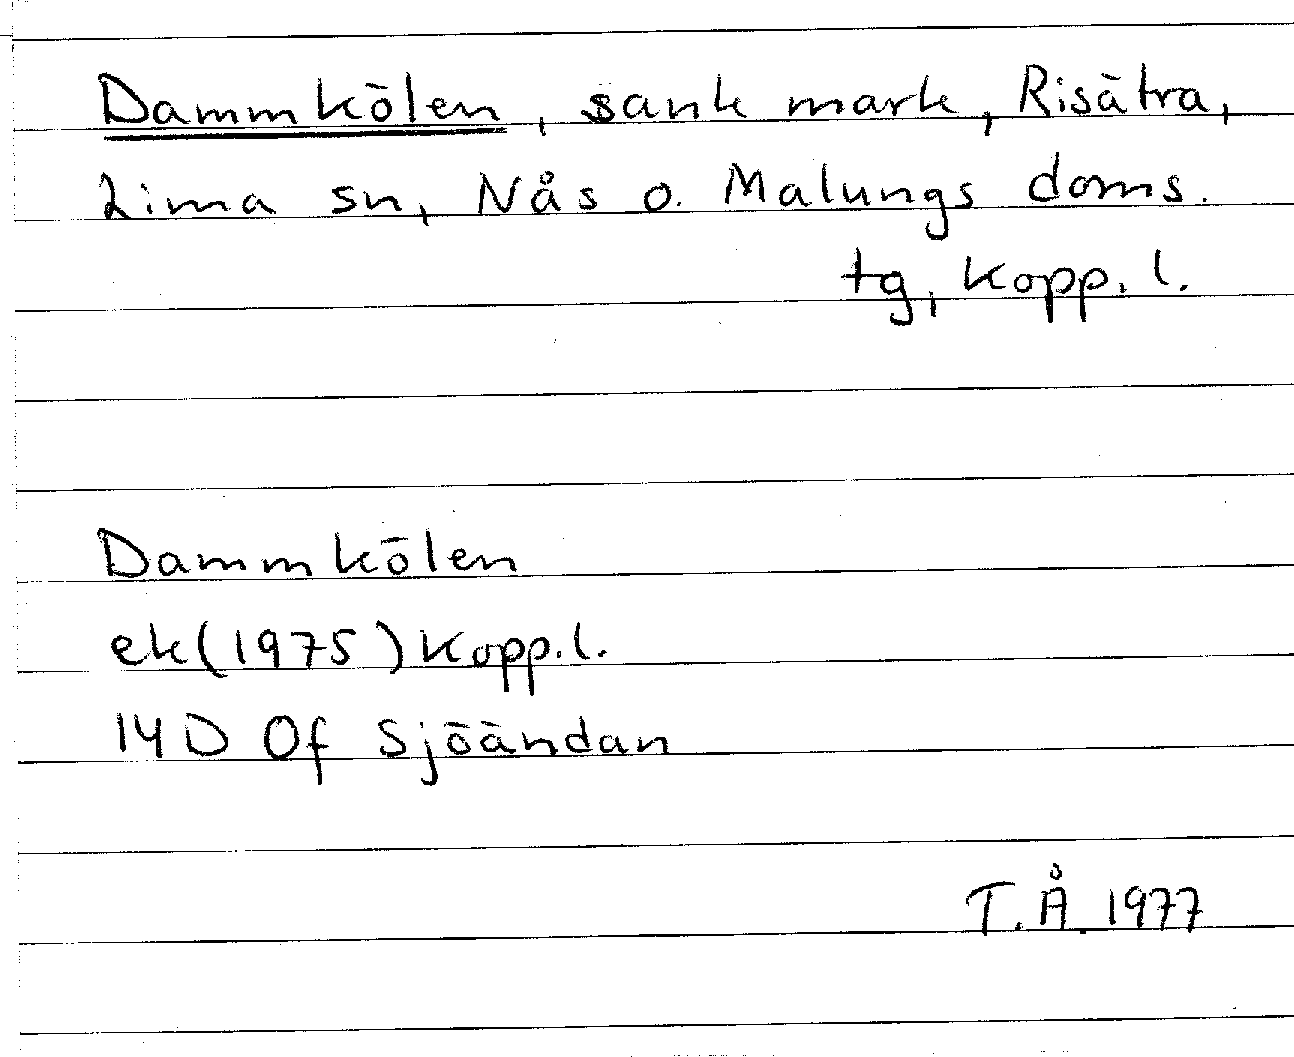 Dammkölen, sank mark, Risätra,
Lima sn, Nås o. Malungs doms.
tg, Kopp. l.
Dammkölen
ek(1975) Kopp.l.
14D 0f Sjöändan
T.Å. 1977